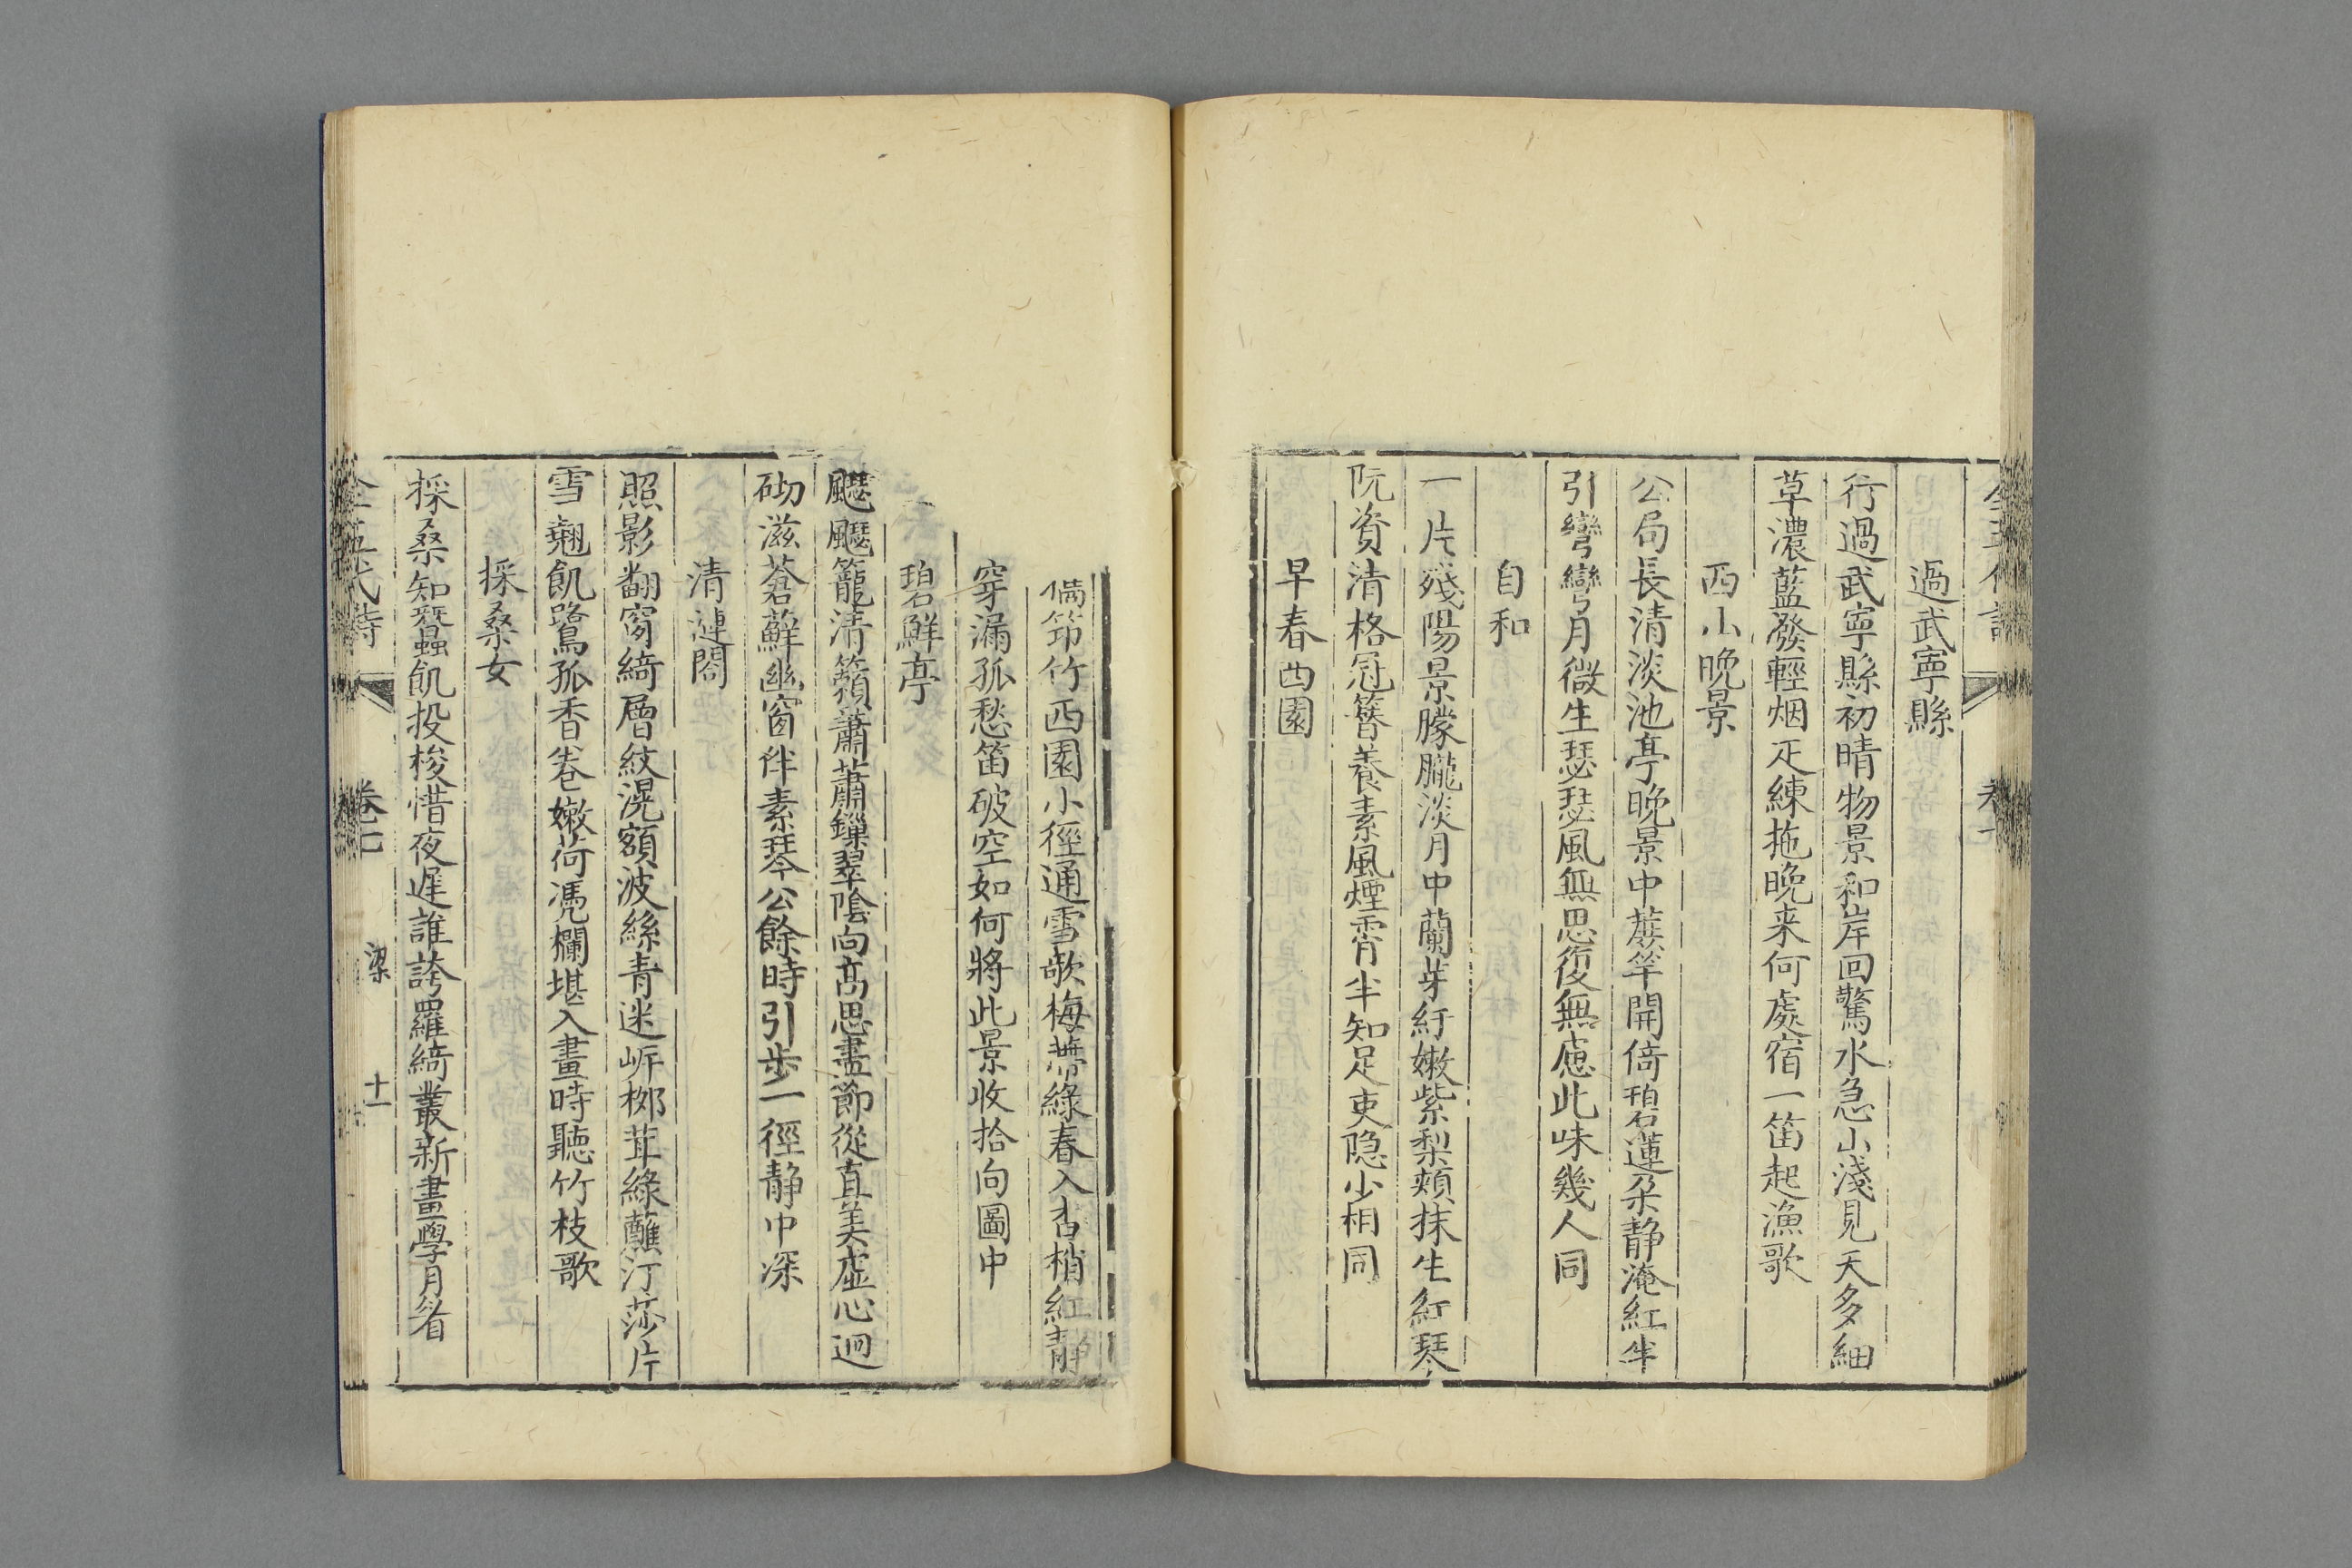 過武寧縣
行過武寧縣初晴物景和岸回驚水急山淺見天多細
草濃藍潑輕烟疋練拖晚来何處宿一笛起漁歌
西山晚景
公局長清淡池亭晚景中蔗竿開倚碧蓮朶静淹紅半
引彎彎月微生瑟瑟風無思復無慮此味幾人同
自和
一片殘陽景朦朧淡月中蘭芽紆嫩紫梨頰抹生紅琴
阮資清格冠簪養素風煙霄半知足吏隐少相同
早春西園
傭笻竹西園小徑通雪欹梅蔕綠春入杏梢紅静
穿漏孤愁笛破空如何將此景收拾向圖中
碧鮮亭
飋飋籠清籟蕭蕭鏁翠陰向髙思盡節從直美虛心迥
砌滋蒼蘚幽窗伴素琴公餘時引步一徑静中深
清漣閣
照影翻窗綺層紋滉額波絲青迷岸栁茸綠蘸汀莎片
雪翹飢鷺孤香卷嫩荷凴欄堪入畫時聽竹枝歌
採桑女
採桑知蠶飢投梭惜夜遅誰誇羅綺叢新畫學月眉
全五代詩 卷七 梁 十一